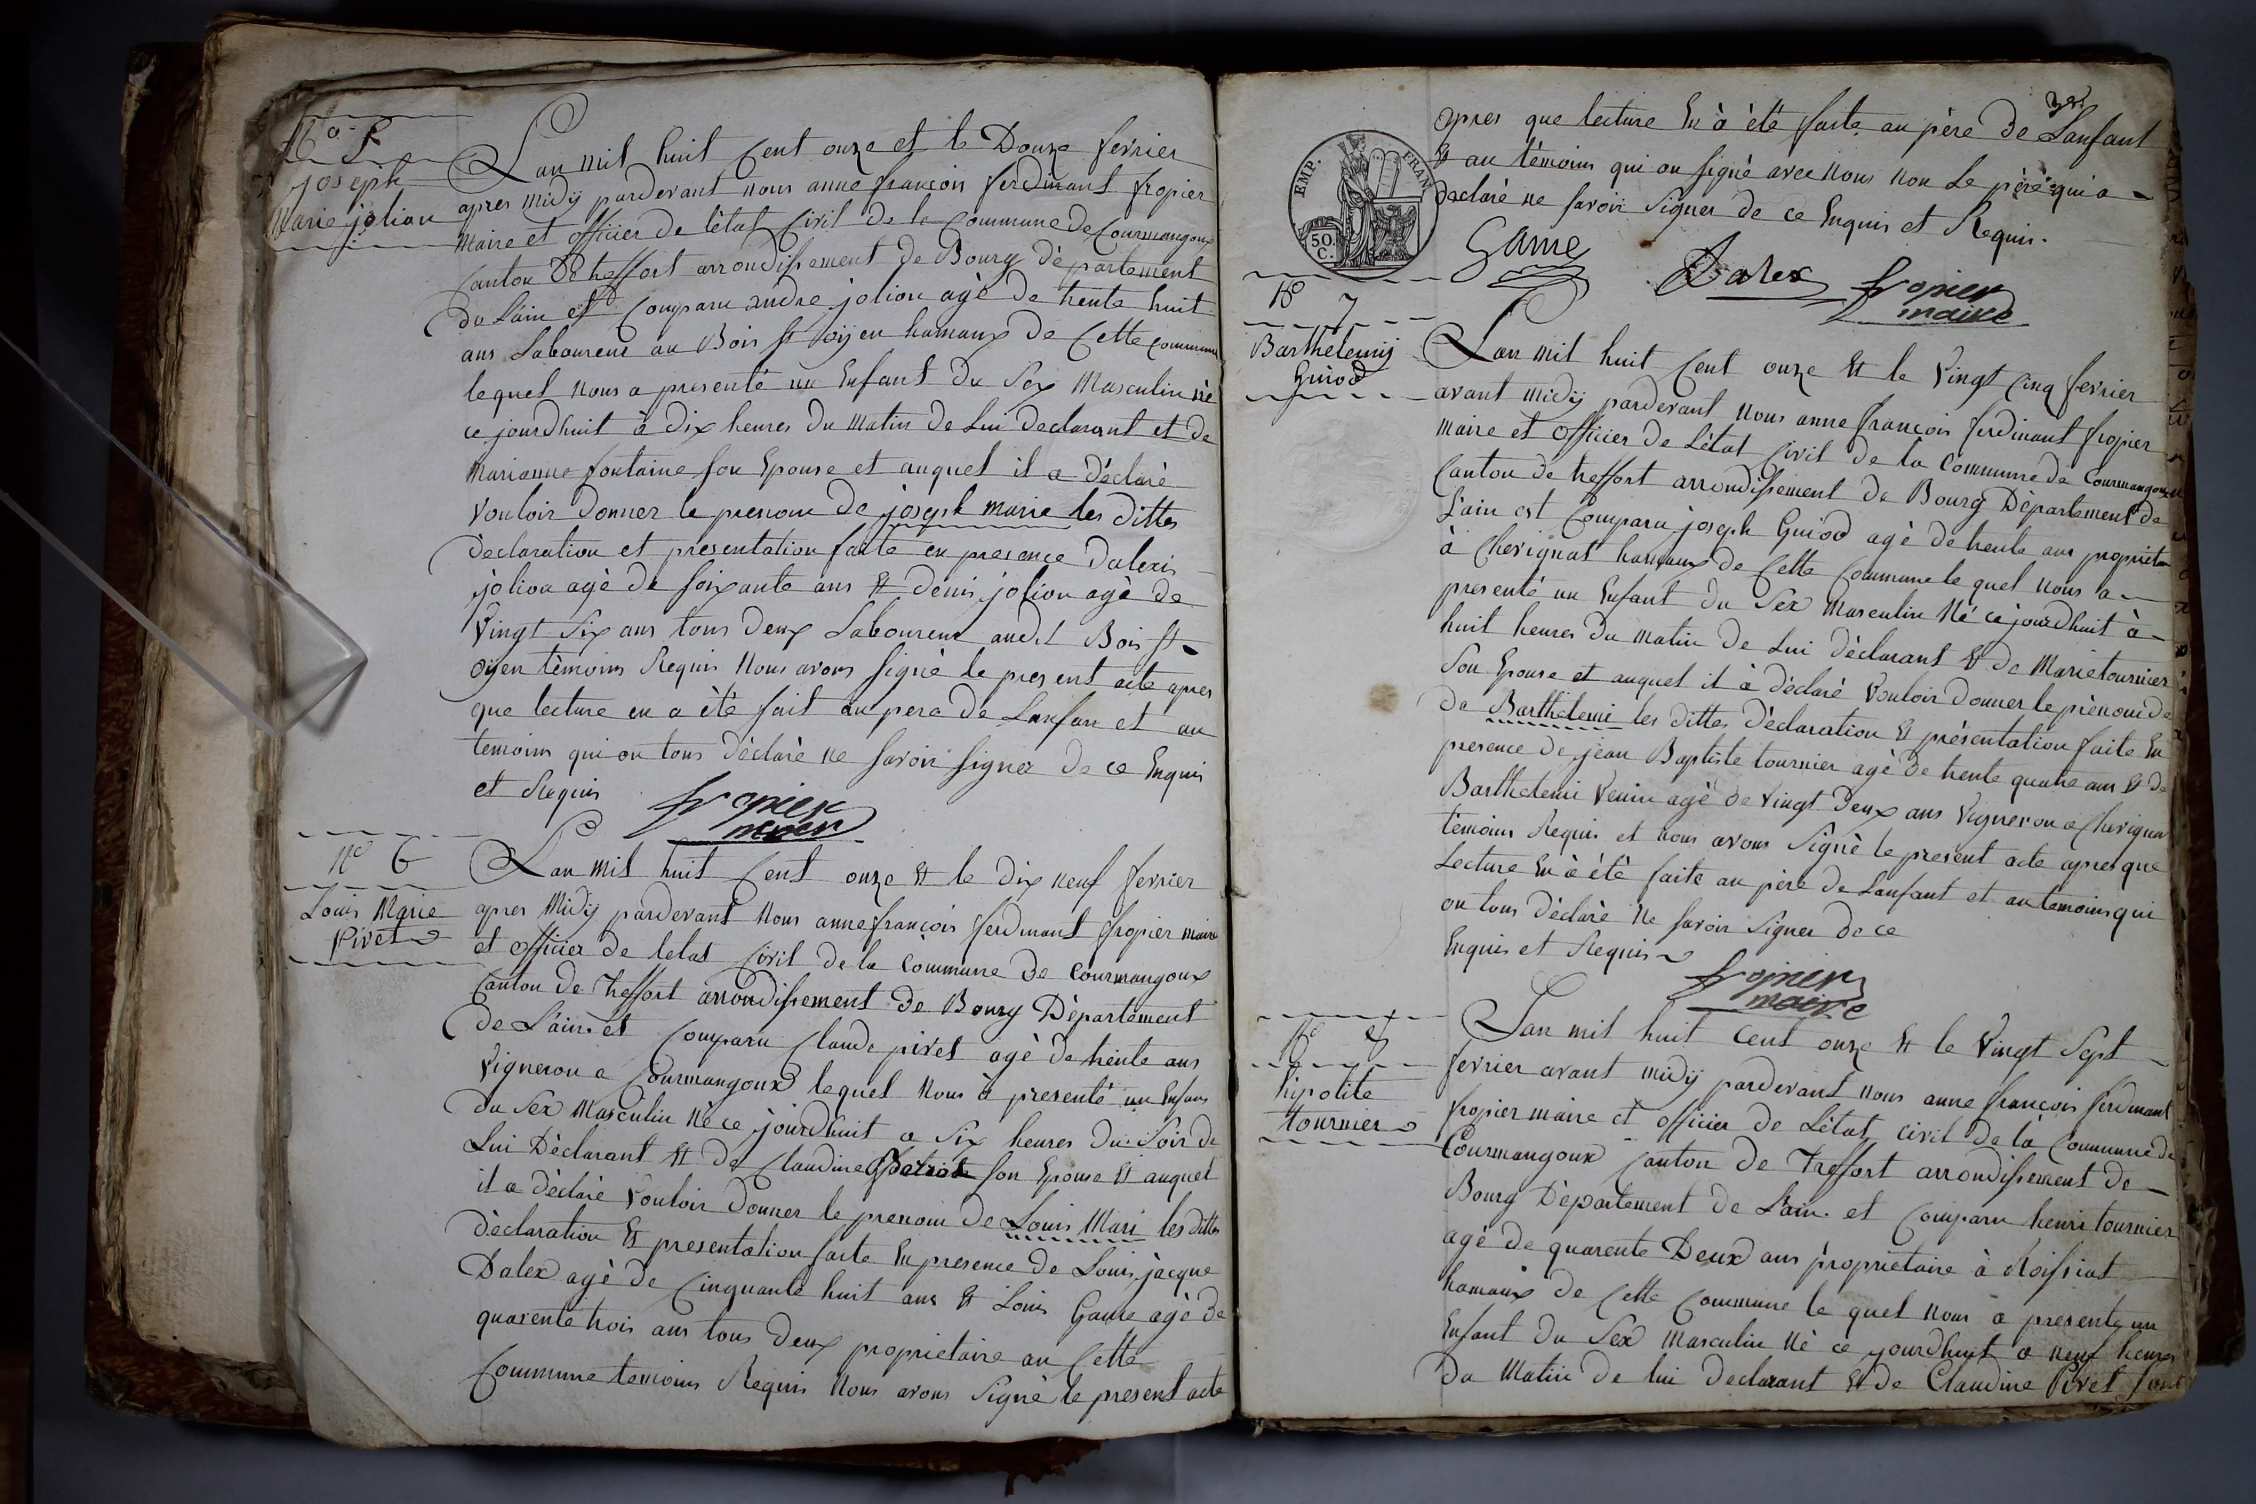 N° 5
Joseph
Marie jolion
Lan mil huit Cent onze et le Douze fevrier
apres midij pardevant nous anne françois ferdinant fropier
maire et officier de l'état Civil de la Commune de Courmangoux
Canton De treffort arrondissement de Bourg département
du Lain est Comparu andre jolion agè de trente huit
ans Laboureur au Bois st oÿen hamaux de Cette Commune
lequel nous a presenté un Enfant du Sex Masculin nè
ce jourdhuit à dix heures du matin de Lui declarant et de
marianne fontaine son Epouse et auquel il a déclaré
vouloir donner le prenom de joseph marie les dittes
dèclaration et presentation faite en presence dalexis
jolion agè de soixante ans Et denis jolion agè de
Vingt Six ans tous deux Laboureur audit Bois st
oÿen tèmoins Requis Nous avons signè le present acte apres
que lecture en a ètè fait au pere de Lanfan et au
temoins qui on tous dèclarè ne savoir signer de ce Enquis
et Requis
fropier
maire
N° 6
Louis Marie
Pivet
Lan mil huit Cent onze Et le dix neuf fevrier
apres Midij pardevant Nous anne françois ferdinant fropier maire
et officier de letat Civil de la Commune de Courmangoux
Canton de Treffort arrondissement de Bourg Dèpartement
de L'ain est Comparu Claude pivet agè de trente ans
Vigneron a Courmangoux lequel Nous à presenté un Enfant
du Sex Masculin Nè ce jourdhuit a Six heures du Soir de
Lui Dèclarant Et de Claudine son Epouse Et auquel
il a dèclaré Vouloir donner le prenom de Louis Mari les dittes
dèclaration Et presentation faite En presence de Louis jàcque
Dalex agè de Cinquante huit ans Et Louis Game agè de
quarente trois ans tous deux proprietaire au Cette
Commune temoins Requis Nous avons Signè le present acte
3e
apres que lecture En à étè faite au père de Lanfant
Et au témoins qui on signé avec nous non Le père qui a
declaré ne savoir Signer de ce Enquis et Requis.
EMP. FRAN
50.
C.
Game
Dalex
fropier
maire
N° 7
Barthelemij
Guiod
Lan mil huit Cent onze Et le Vingt Cinq fevrier
avant midij pardevant Nous anne françois ferdinant fropier
maire et officier de L'état Civil de la Commune de Courmangoux
Canton de treffort arrondissement de Bourg Dèpartement de
L'ain est Comparu joseph Guiod agè de trente ans proprietaire
à Chevignat hamaux de Cette Commune le quel nous a
presenté un Enfant du Sex Masculin Né ce jourdhuit à
huit heures du matin de Lui déclarant Et de Marie tournier
Son Epouse et auquel il à déclaré Vouloir donner le prènom de
De Barthelemi les dittes Dèclaration Et présentation faite En
presence de jean Baptiste tournier agè de trente quatre ans Et de
Barthelemi Venin agè de Vingt deux ans Vigneron a Chevignat
témoins Requis et nous avons Signè le present acte apres que
Lecture En à ètè faite au père de Lanfant et au temoins qui
on tous déclarè Ne savoir Signer de ce
Enquis et Requis
fropier
maire
N° 8
hipolite
tournier
Lan mil huit Cent onze Et le Vingt Sept
fevrier avant midij pardevant nous anne françois ferdinant
fropier maire et officier de L'état civil de la Commune de
Courmangoux Canton de Treffort arrondissement de
Bourg Département de L'ain est Comparu henri tournier
agè de quarente Deux ans propriétaire à Roissiat
hamaux de Cette Commune le quel nous a presentè un
Enfant du Sex Masculin Nè ce jourdhuit a neuf heures
Du Matin de lui declarant Et de Claudine Pivet